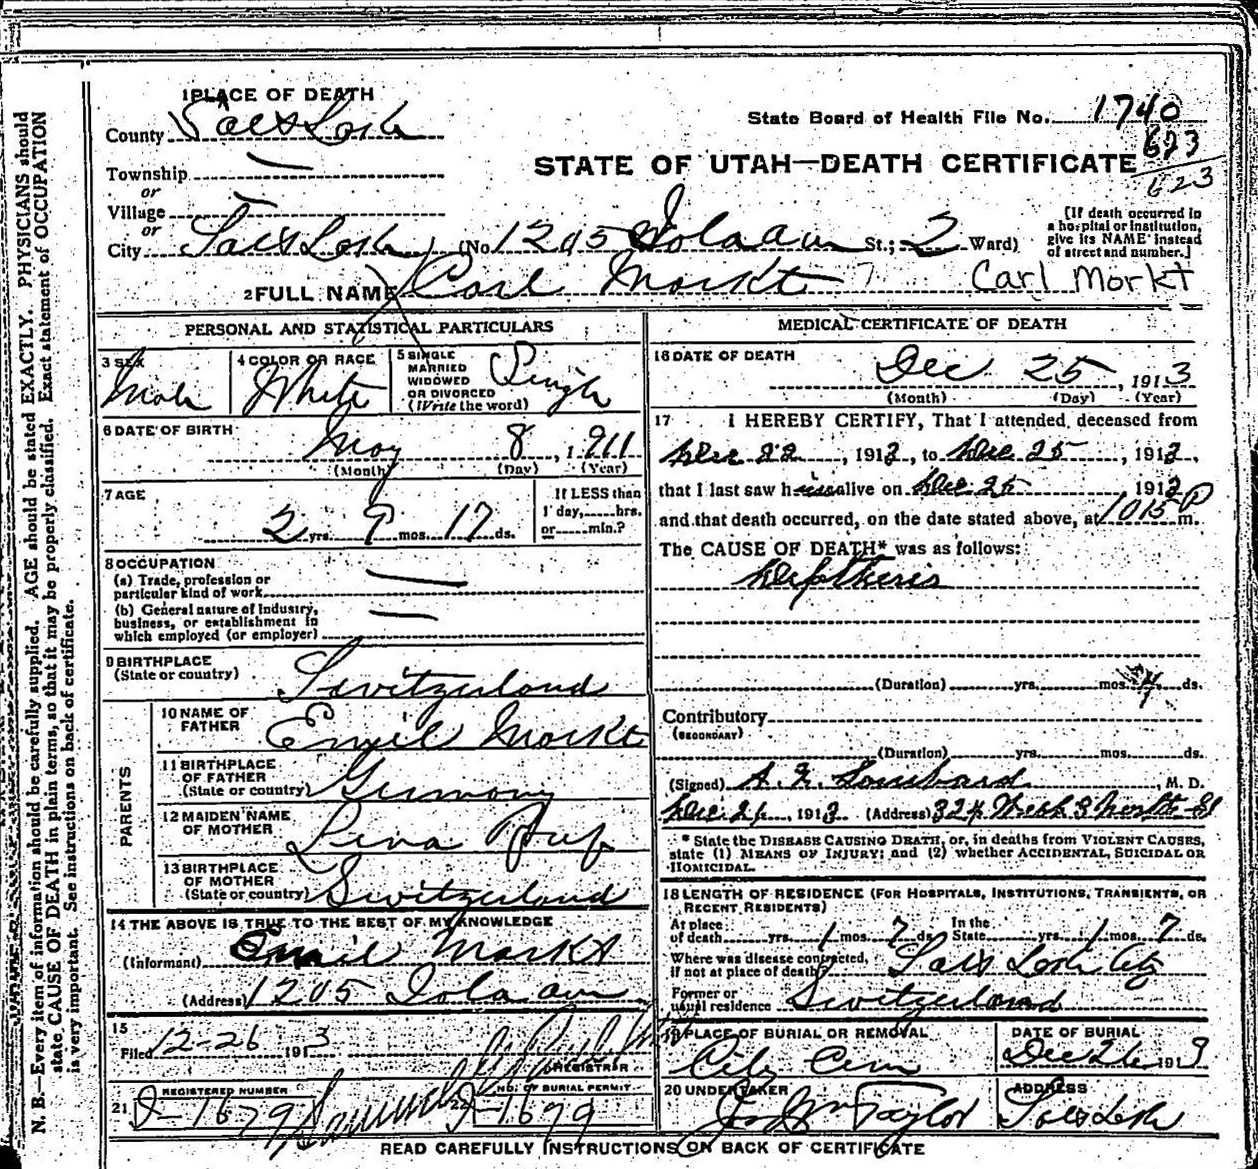 1 PLACE OF DEATH
County Salt Lake
State Board of Health File No. 1740
623
623
Township —
or
Village —
or
City Salt Lake (No 1205 Iola ave St.; 2 Ward)
STATE OF UTAH—DEATH CERTIFICATE
[If death occurred in
a hospital or institution,
give its NAME instead
of street and number.]
2 FULL NAME Carl Morkt
Carl Morkt
PERSONAL AND STATISTICAL PARTICULARS
3 SEX
Male
4 COLOR OR RACE
White
5 SINGLE
MARRIED
WIDOWED
OR DIVORCED
(Write the word)
Single
6 DATE OF BIRTH
May 8, 1911
(Month) (Day) (Year)
7 AGE
2 yrs. 7 mos. 17 ds.
If LESS than
1 day, hrs.
or min.?
8 OCCUPATION
(a) Trade, profession or
particular kind of work —
(b) General nature of Industry,
business, or establishment in
which employed (or employer) —
9 BIRTHPLACE
(State or country) Switzerland
PARENTS
10 NAME OF
FATHER Emil Morkt
11 BIRTHPLACE
OF FATHER
(State or country) Germany
12 MAIDEN NAME
OF MOTHER Lina
13 BIRTHPLACE
OF MOTHER
(State or country) Switzerland
14 THE ABOVE IS TRUE TO THE BEST OF MY KNOWLEDGE
(Informant) Emil Morkt
(Address) 1205 Iola ave
15
Filed 12-26 1913
REGISTRAR
REGISTERED NUMBER
21 D-1679
NO. OF BURIAL PERMIT
22 D-1679
MEDICAL CERTIFICATE OF DEATH
16 DATE OF DEATH
Dec 25, 1913
(Month) (Day) (Year)
17 I HEREBY CERTIFY, That I attended deceased from
Dec 22, 1913, to Dec 25, 1913,
that I last saw him alive on Dec 25 1913
and that death occurred, on the date stated above, at 1015 P m.
The CAUSE OF DEATH* was as follows:
Diptheria
(Duration) yrs. mos. 4 ds.
Contributory
(SECONDARY)
(Duration) yrs. mos. ds.
(Signed) A. Z. Lombard, M. D.
Dec 26, 1913 (Address) 324 West 3 North St
* State the DISEASE CAUSING DEATH, or, in deaths from VIOLENT CAUSES,
state (1) MEANS OF INJURY; and (2) whether ACCIDENTAL, SUICIDAL OR
HOMICIDAL.
18 LENGTH OF RESIDENCE (FOR HOSPITALS, INSTITUTIONS, TRANSIENTS, OR
RECENT RESIDENTS)
At place
of death yrs. 1 mos. 7 ds.
In the
State yrs. 1 mos. 7 ds.
Where was disease contracted,
if not at place of death? Salt Lake City
Former or
usual residence Switzerland
19 PLACE OF BURIAL OR REMOVAL
City Cem
DATE OF BURIAL
Dec 26 1913
20 UNDERTAKER
Jos Wm Taylor
ADDRESS
Salt Lake
READ CAREFULLY INSTRUCTIONS ON BACK OF CERTIFICATE
N. B.—Every item of information should be carefully supplied. AGE should be stated EXACTLY. PHYSICIANS should
state CAUSE OF DEATH in plain terms, so that it may be properly classified. Exact statement of OCCUPATION
is very important. See instructions on back of certificate.